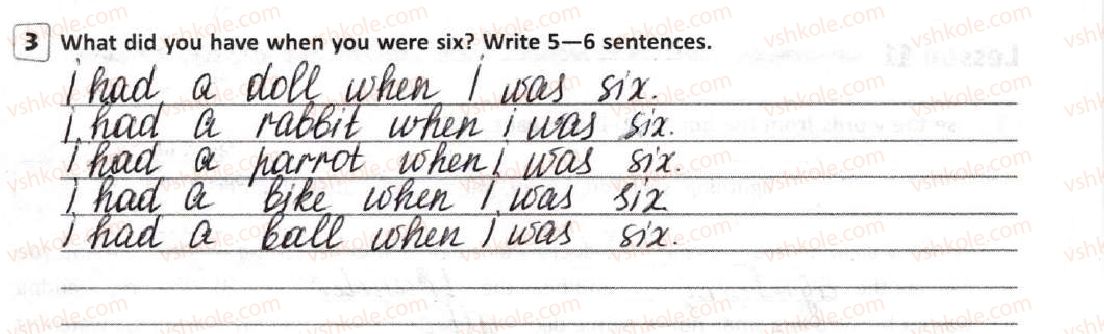 3 What did you have when you were six? Write 5—6 sentences.
I had a doll when I was six.
I had a rabbit when i was six.
I had a parrot when I was six.
I had a bike when I was six
I had a ball when I was six.